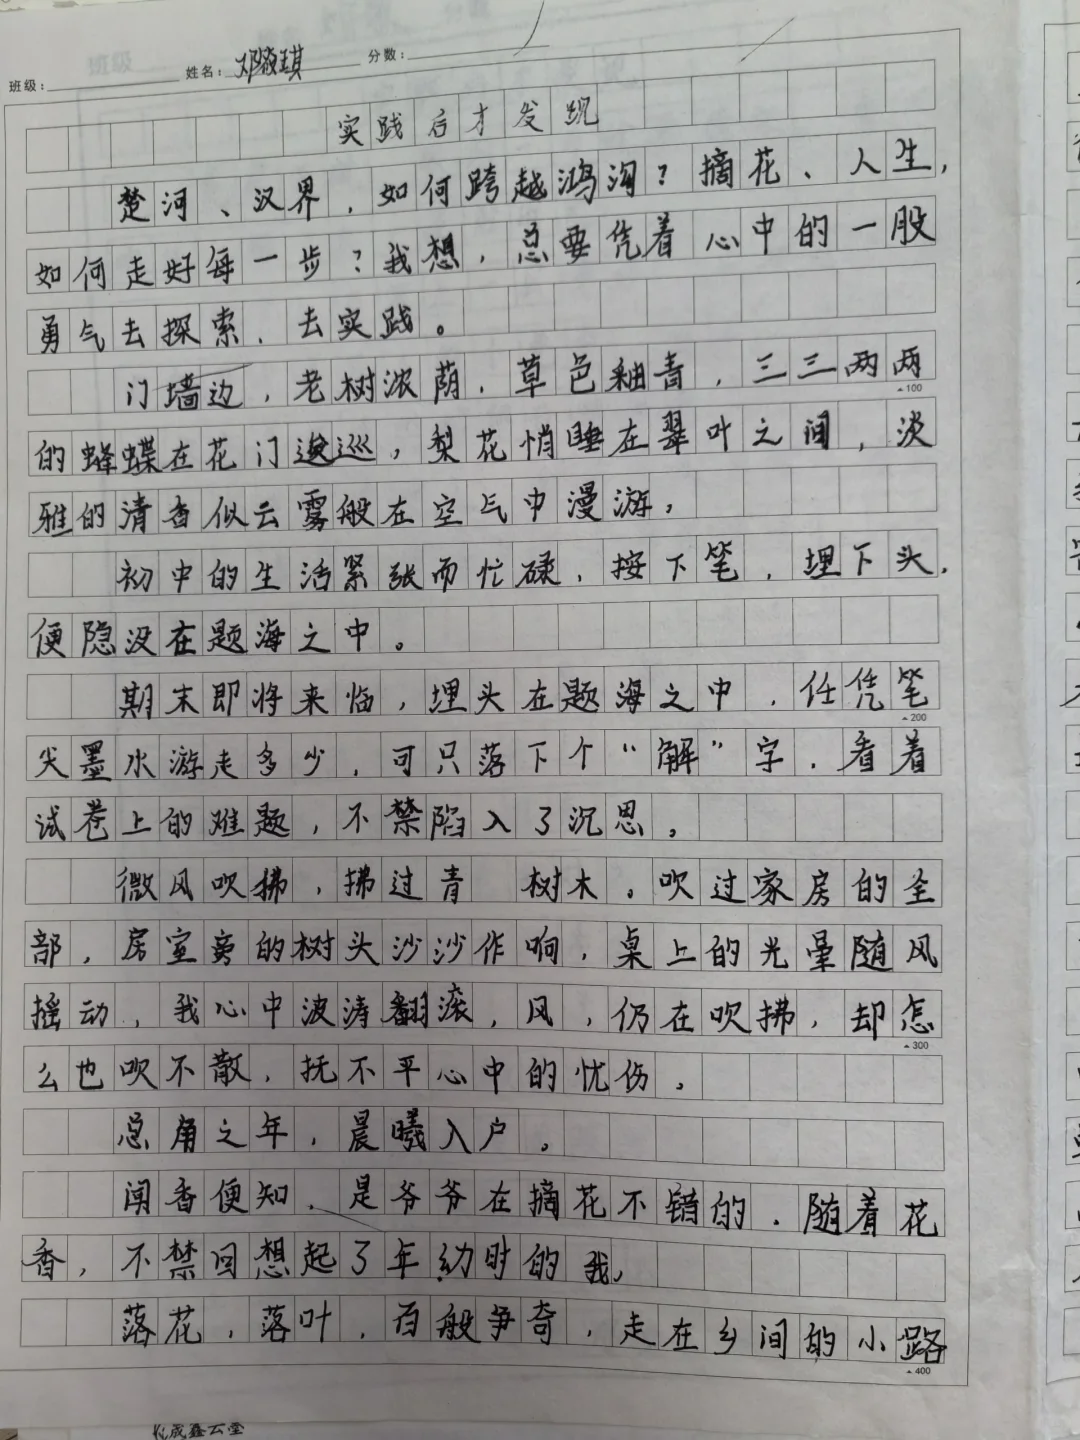 班级： 姓名：邓薇琪 分数：
实践后才发现
楚河、汉界，如何跨越鸿沟？摘花、人生，
如何走好每一步？我想，总要凭着心中的一股
勇气去探索，去实践。
门墙边，老树浓荫，草色釉青，三三两两
100
的蜂蝶在花门逡巡，梨花悄睡在翠叶之间，淡
雅的清香似云雾般在空气中漫游，
初中的生活紧张而忙碌，按下笔，埋下头，
便隐没在题海之中。
期末即将来临，埋头在题海之中，任凭笔
200
尖墨水游走多少，可只落下个“解”字，看着
试卷上的难题，不禁陷入了沉思，
微风吹拂，拂过青 树木，吹过家房的全
部，房室旁的树头沙沙作响，桌上的光晕随风
摇动，我心中波涛翻滚，风，仍在吹拂，却怎
300
么也吹不散，抚不平心中的忧伤，
总角之年，晨曦入户。
闻香便知，是爷爷在摘花不错的，随着花
香，不禁回想起了年幼时的我，
落花，落叶，百般争奇，走在乡间的小路
400